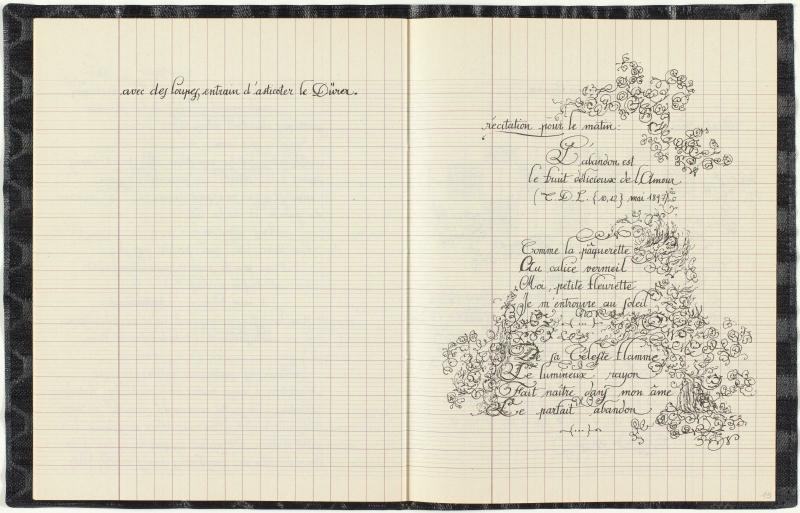 avec des loupes, entrain d'asticoter le Dürer.
récitation pour le matin:
L'abandon est
le fruit délicieux de l'Amour
mai 1897)
Comme la pâquerette
Au calice vermeil
Moi, petite fleurette
Je m'entrouvre au soleil
(...)
De sa Céleste flamme
Le lumineux rayon
Fait naître dans mon âme
Le parfait abandon
(...)